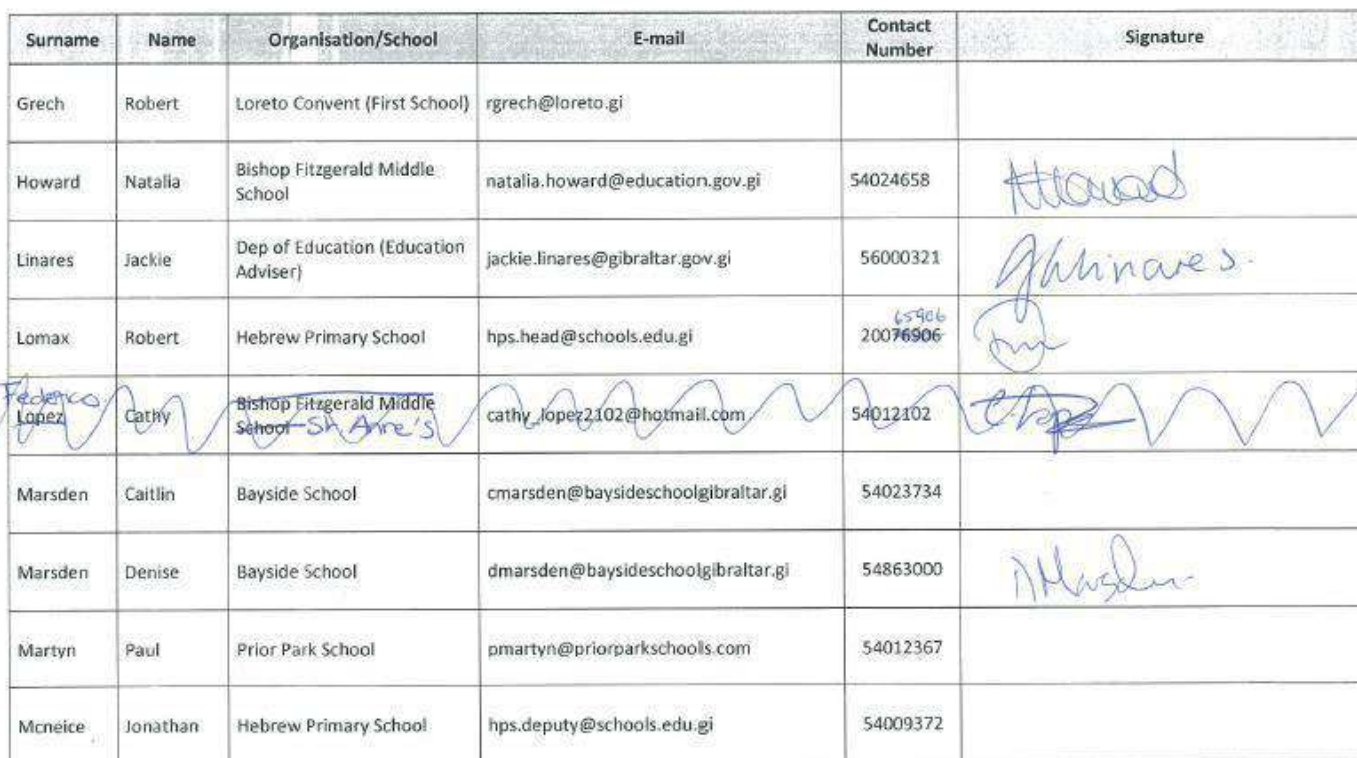 Surname Name Organisation/School E-mail Contact Number Signature
Grech Robert Loreto Convent (First School) rgrech@loreto.gi
Howard Natalia Bishop Fitzgerald Middle School natalia.howard@education.gov.gi 54024658 NHoward
Linares Jackie Dep of Education (Education Adviser) jackie.linares@gibraltar.gov.gi 56000321 Linares.
65906
Lomax Robert Hebrew Primary School hps.head@schools.edu.gi 20076906
Federico
Lopez Cathy Bishop Fitzgerald Middle School St Anne's cathy_lopez2102@hotmail.com 54012102 C. Lopez
Marsden Caitlin Bayside School cmarsden@baysideschoolgibraltar.gi 54023734
Marsden Denise Bayside School dmarsden@baysideschoolgibraltar.gi 54863000 DMarsden
Martyn Paul Prior Park School pmartyn@priorparkschools.com 54012367
Mcneice Jonathan Hebrew Primary School hps.deputy@schools.edu.gi 54009372